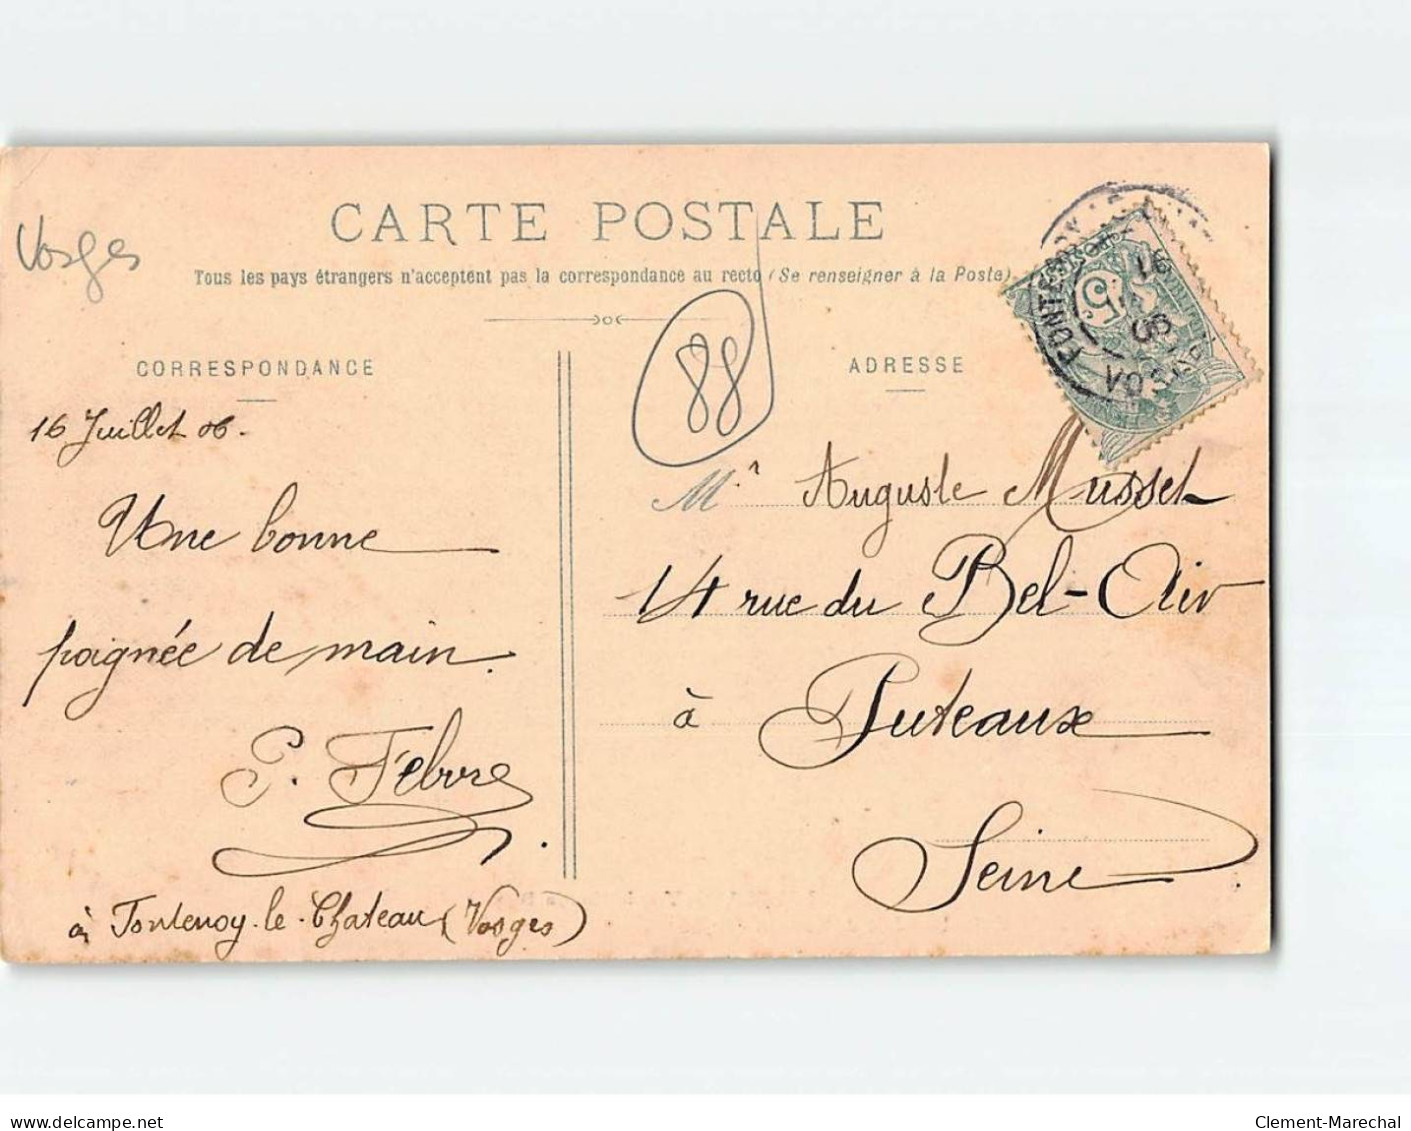 Vosges
CARTE POSTALE
Tous les pays étrangers n'acceptent pas la correspondance au recto (Se renseigner à la Poste)
88
CORRESPONDANCE
ADRESSE
16 Juillet 06.
Une bonne
poignée de main.
P. Febvre
à Fontenoy-le-Chateau (Vosges)
Mr Auguste Musset
14 rue du Bel-Air
à Puteaux
Seine
5
16
VOSGES
delcampe.net
Clement-Marechal